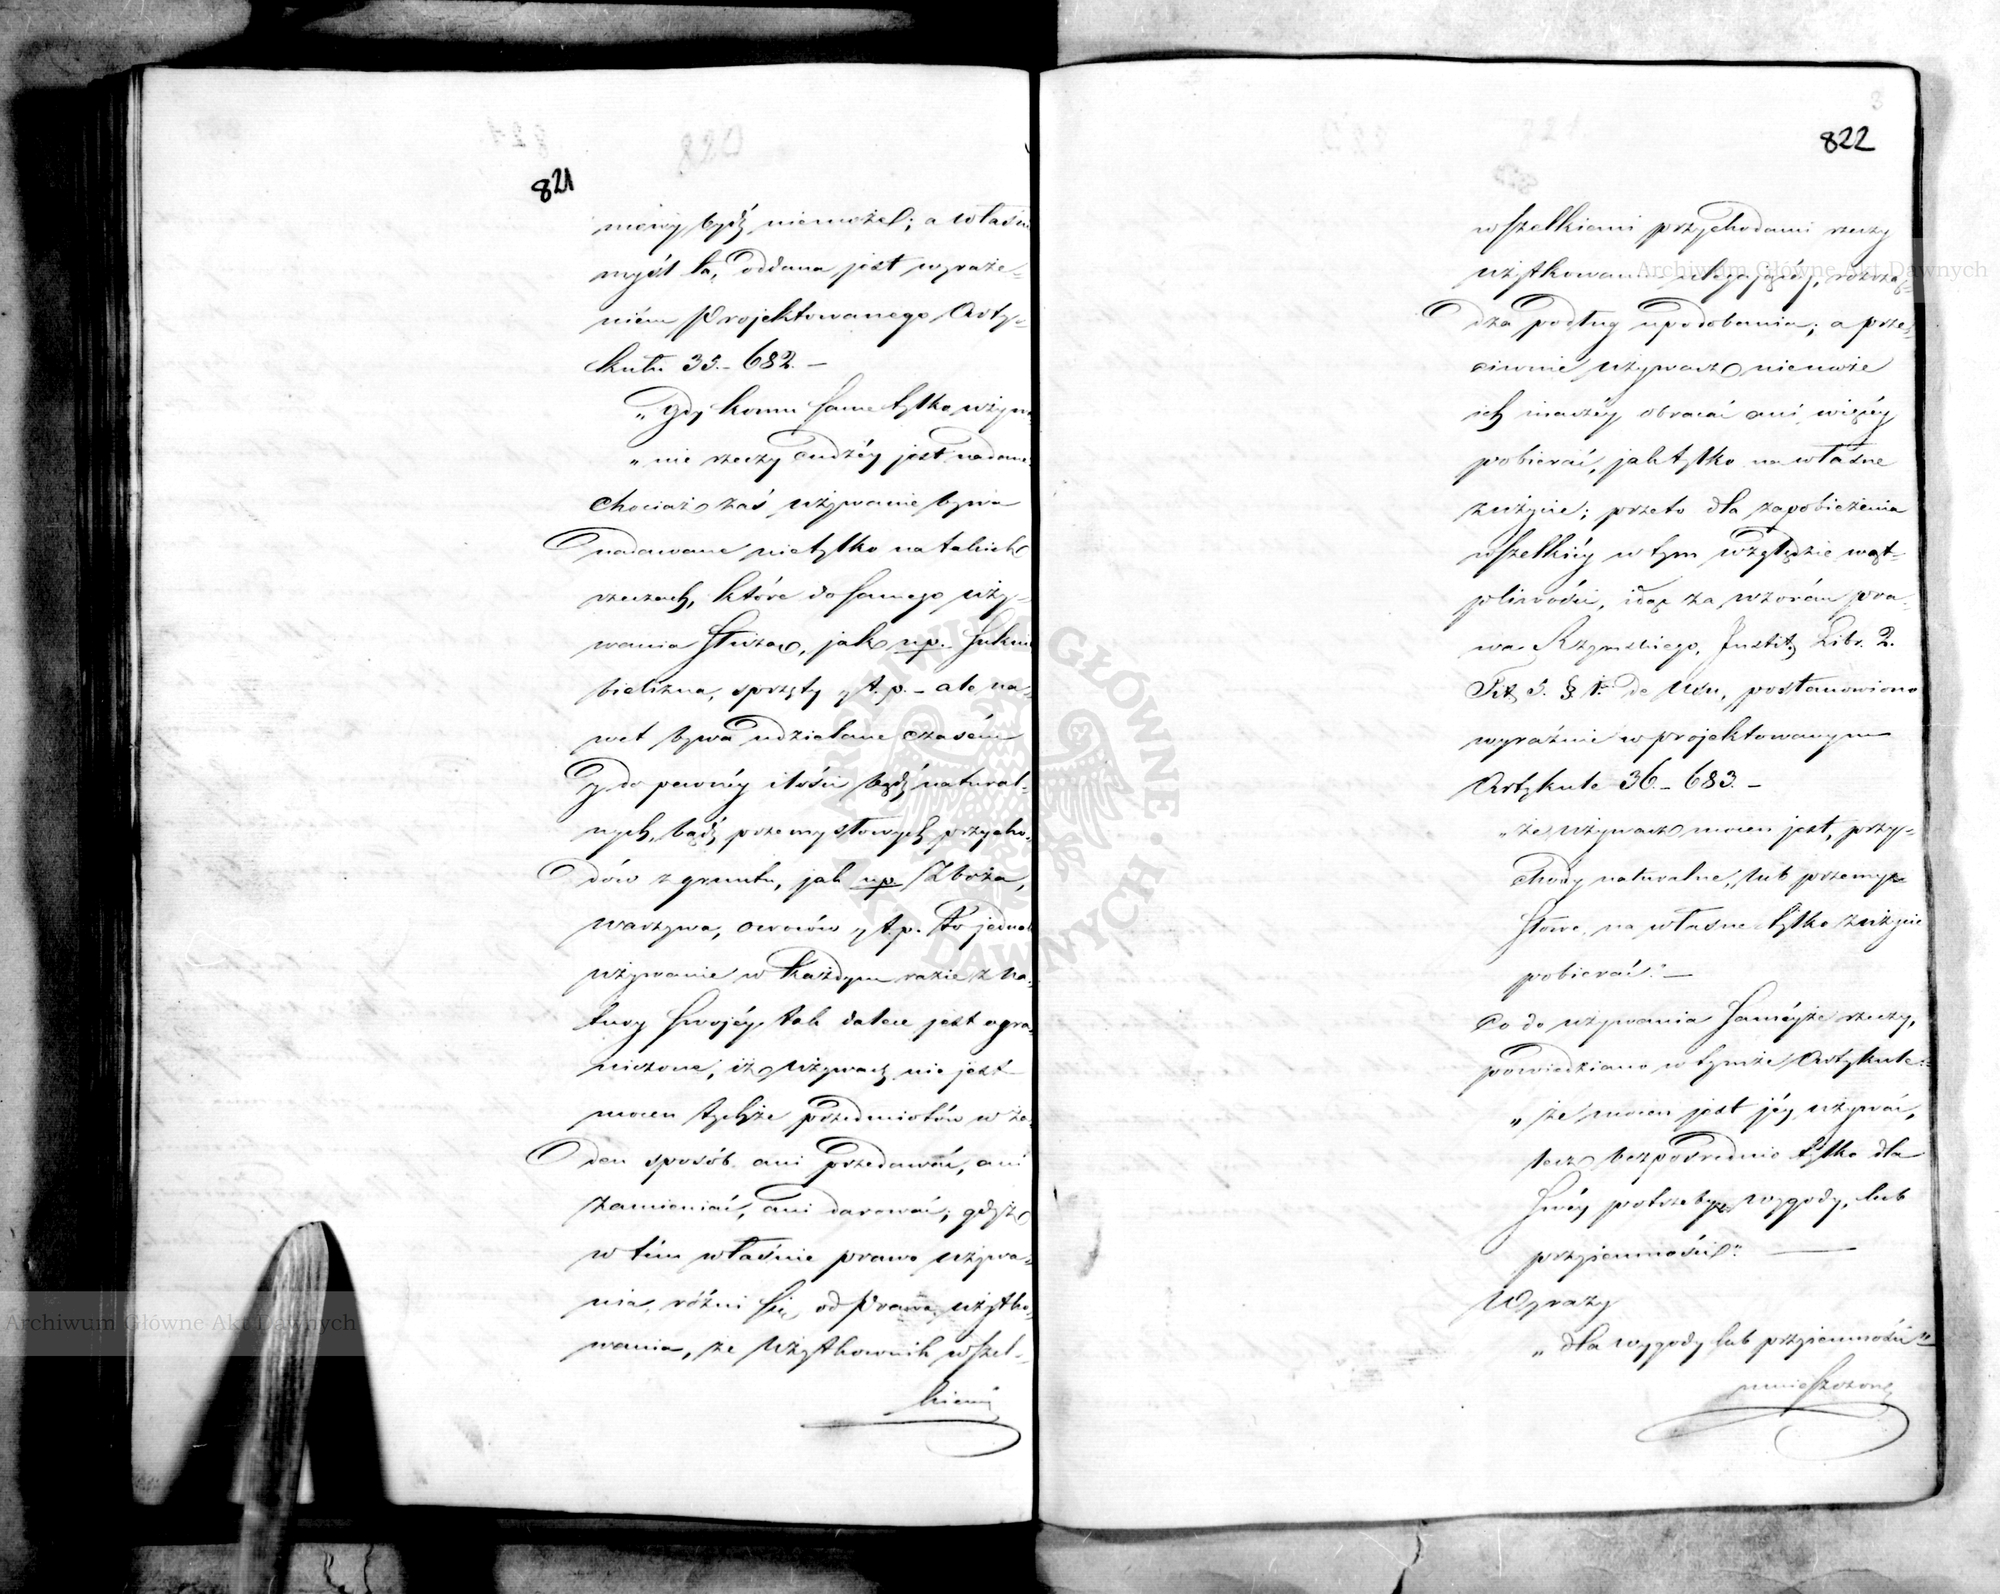 821
mowy bydź niemoże; a właśnie
myśl ta, oddana jest wyraże-
niém Projektowanego Arty-
kułu 35.- 682.-
„Gdy komu same tylko używa
„nie rzeczy cudzéy jest nadane
chociaż zaś używanie bywa
nadawane nietylko na takich
rzeczach, które do samego uży-
wania służą, jak np. suknie
bielizna, sprzęty y t. p. - ale na-
wet bywa udzielane czasém
y do pewnéy ilości bądź natural-
nych, bądź przemysłowych przycho-
dów z gruntu, jak np. Zboża,
warzywa, owoców y t. p. To jednak
używanie w każdym razie z na-
tury swojéy, tak dalece jest ogra-
niczone, iż używacz nie jest
mocen tychże przedmiotów w ża-
den sposób ani przedawać, ani
zamieniać, ani darować; gdyż
w tém właśnie prawo używa-
nia, różni się od Prawa użytko-
wania, że Użytkownik wszel-
kiemi
822
wszelkiemi przychodami rzeczy
użytkowaniu ulegającéy, rozrzą-
dza podług upodobania; a prze-
ciwnie używacz niemoże
ich inaczéy obracać ani więcéy
pobierać, jak tylko na własne
zużycie; przeto dla zapobieżenia
wszelkiéy w tym względzie wąt-
pliwości, idąc za wzorém pra-
wa Rzymskiego, Instit. Libr. 2.
Tit. 5. § 1. De Usu, postanowiono
wyraźnie w projektowanym
Artykule 36.- 683.-
„że używacz mocen jest, przy-
chody naturalne, lub przemy-
słowe, na własne tylko zużycie
pobierać."-
Co do używania saméyże rzeczy,
powiedziano w tymże Artykule:
„że mocen jest jéy używać,
lecz bezpośrednio tylko dla
swéy potrzeby, wygody, lub
przyjemności".
Wyrazy
„dla wygody lub przyjemności"
umieszczone
Archiwum Główne Akt Dawnych
Archiwum Główne Akt Dawnych
ARCHIWUM GŁÓWNE AKT DAWNYCH